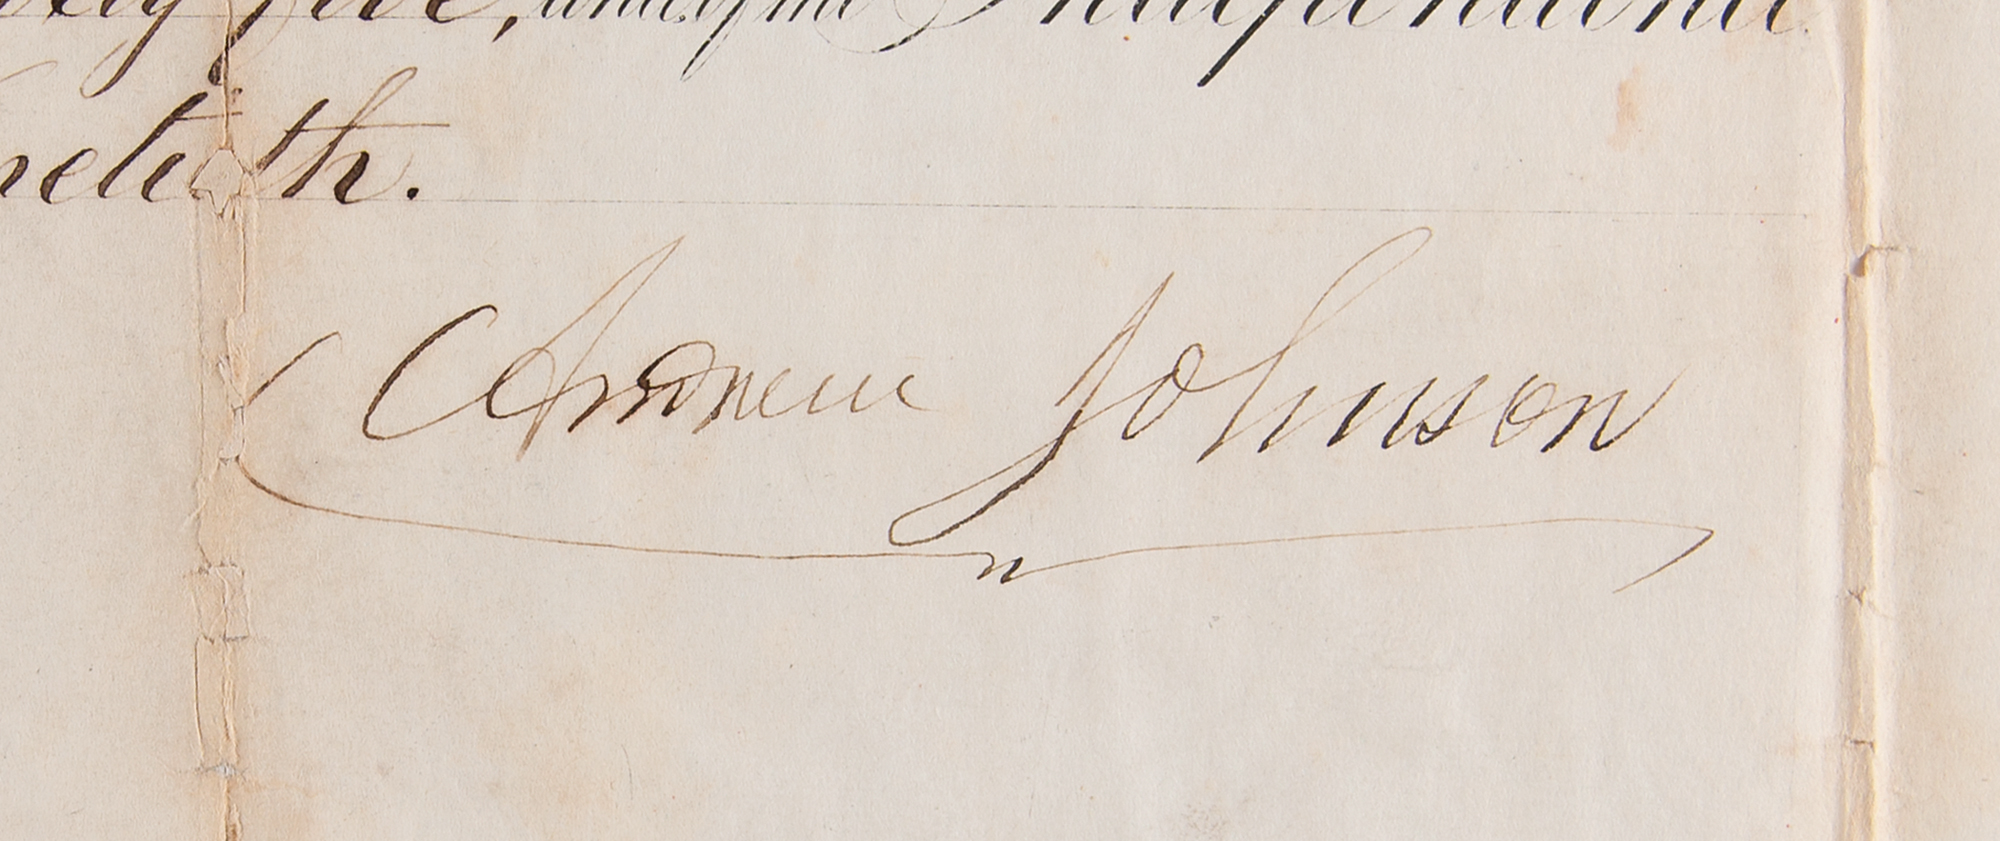 ty five, and of the Independence
netieth.
Andrew Johnson